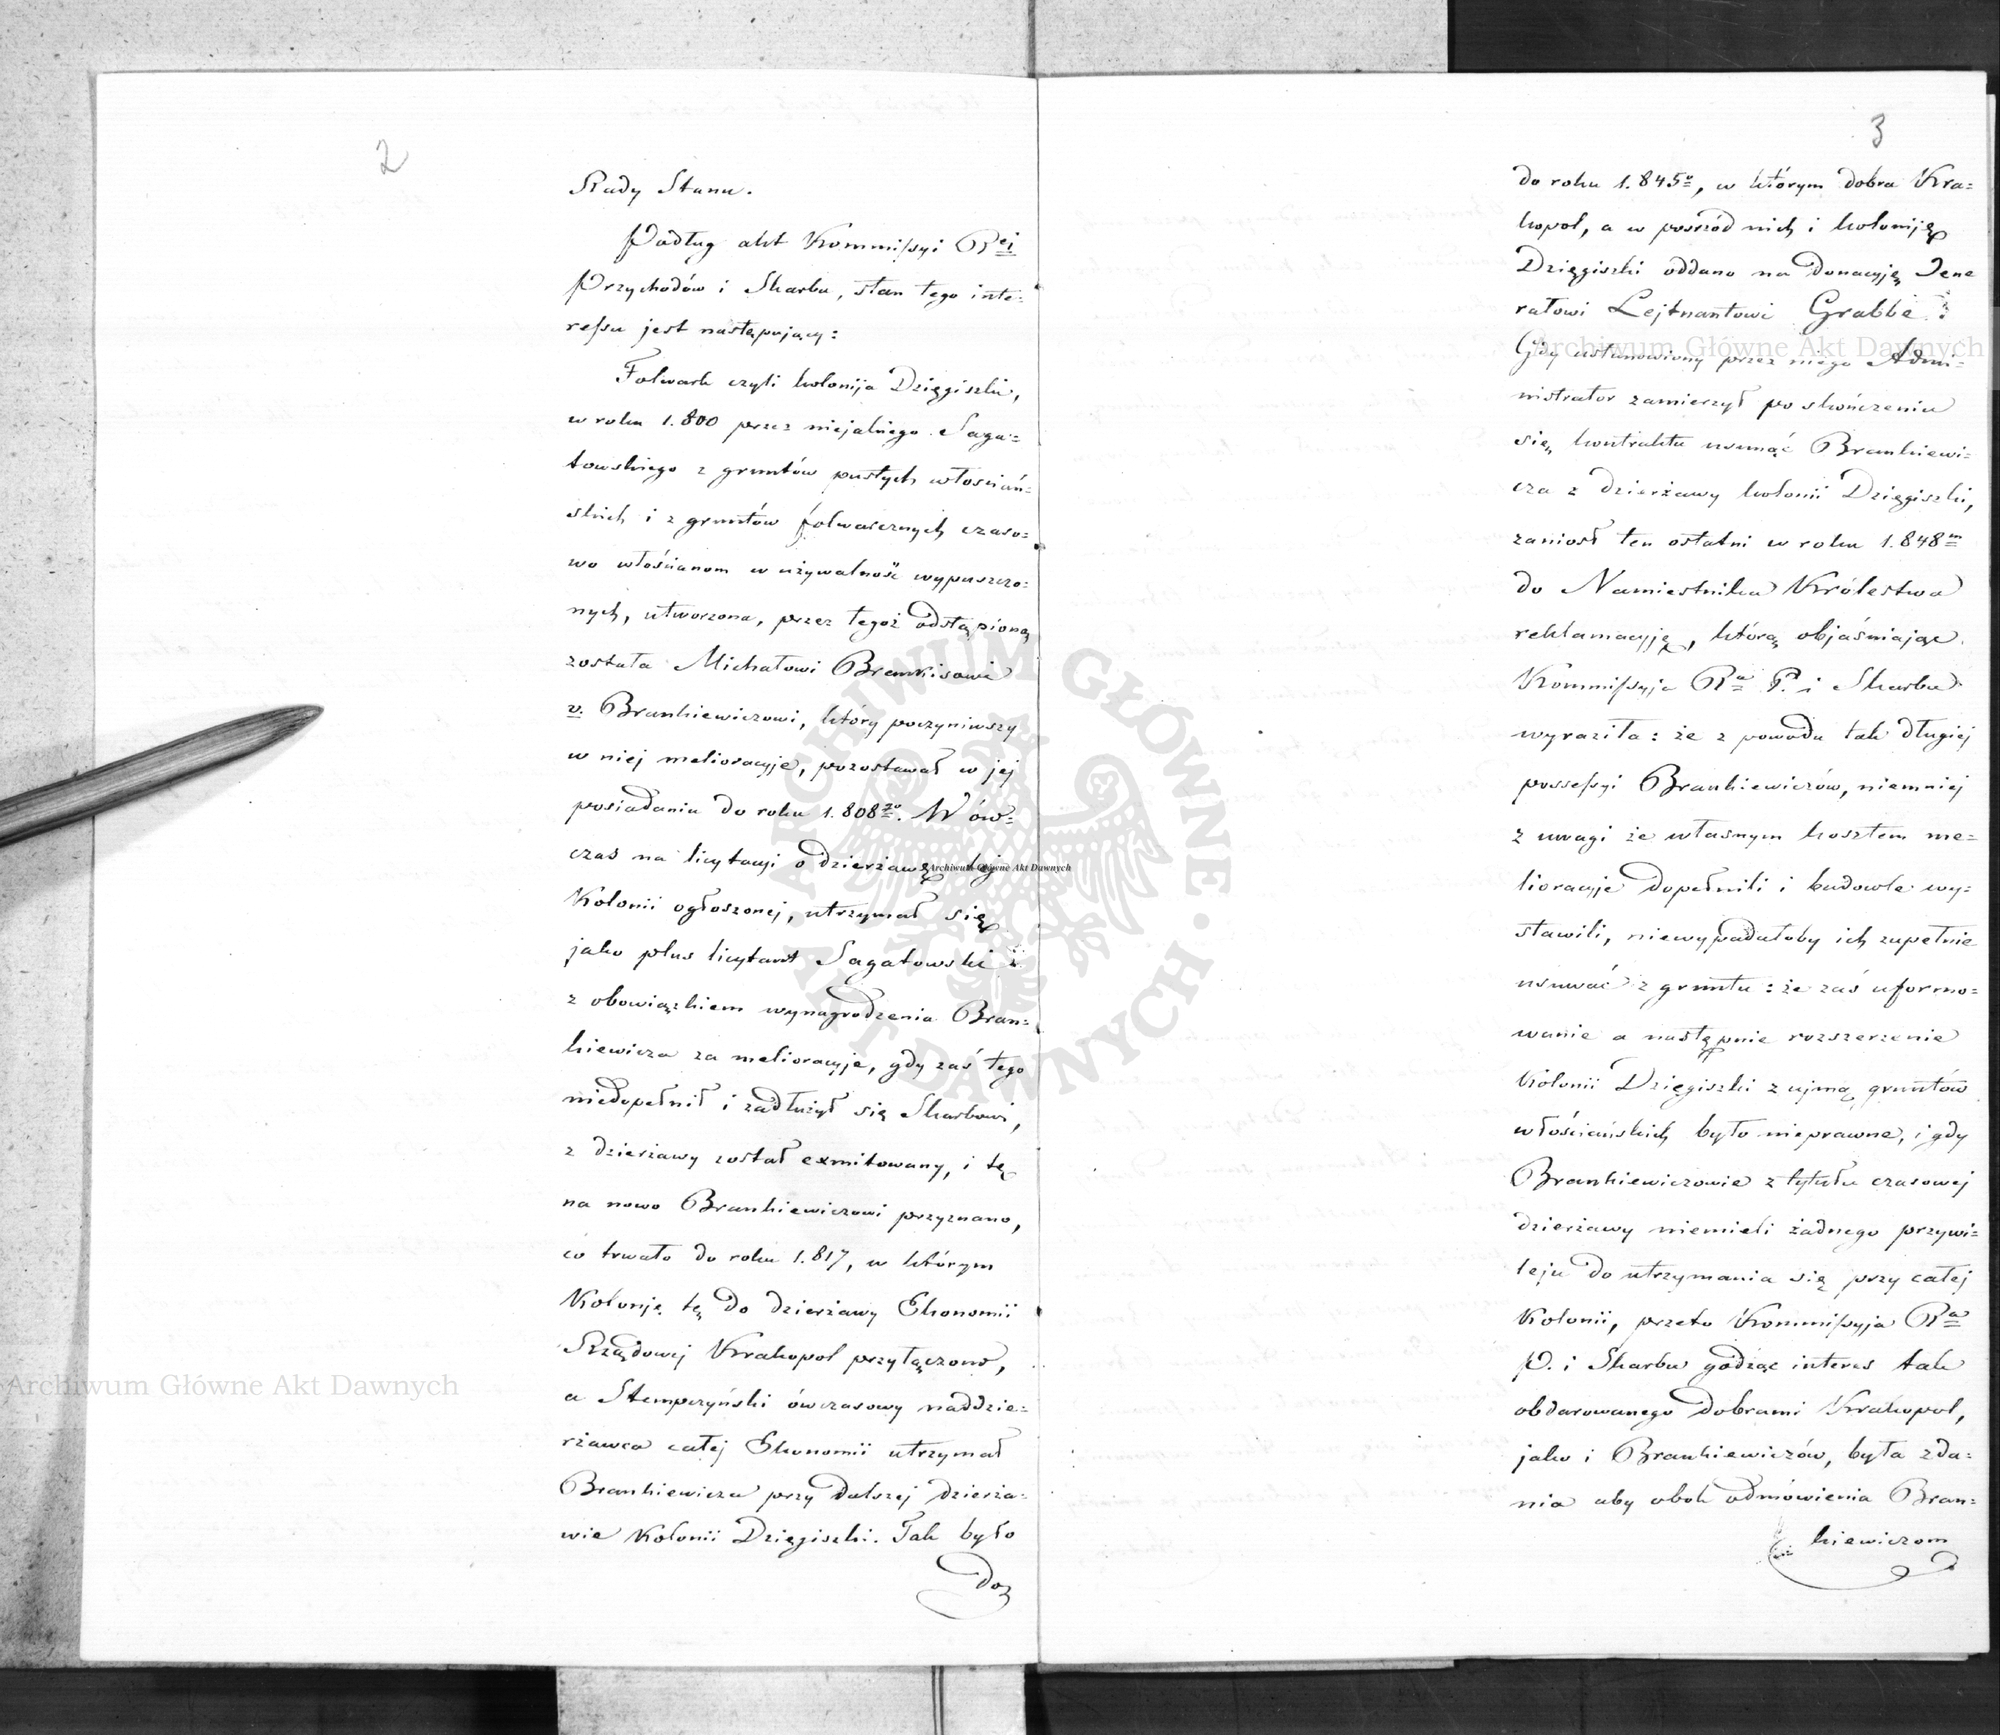 2
Rady Stanu.
Podług akt Kommissyi Rei
Przychodów i Skarbu, stan tego inte=
resu jest następujący:
Folwark czyli kolonija Dzięgiszki,
w roku 1.800 przez niejakiego Saga=
towskiego z gruntów pustych włościań=
skich i z gruntów folwarcznych czaso=
wo włościanom w używalność wypuszczo=
nych, utworzona, przez tegoż odstąpioną
została Michałowi Brankisowi
v. Brankiewiczowi, który poczyniwszy
w niej melioracyje, pozostawał w jej
posiadaniu do roku 1.808go. Wów=
czas na licytacyi o dzierżawę tej
Kolonii ogłoszonej, utrzymał się
jako plus licytant Sagatowski
z obowiązkiem wynagrodzenia Bran=
kiewicza za melioracyje, gdy zaś tego
niedopełnił i zadłużył się Skarbowi,
z dzierżawy został exmitowany, i tę
na nowo Brankiewiczowi przyznano,
co trwało do roku 1.817, w którym
Koloniję tę do dzierżawy Ekonomii
Rządowej Krakopol przyłączono,
a Stempczyński ówczasowy naddzie=
rżawca całej Ekonomii utrzymał
Brankiewicza przy dalszej dzierża=
wie Kolonii Dzięgiszki. Tak było
do
3
do roku 1.845o, w którym dobra Kra=
kopol, a w pośród nich i koloniję
Dzięgiszki oddano na donacyję Jene
rałowi Lejtnantowi Grabbe.
Gdy ustanowiony przez niego Admi=
nistrator zamierzył po skończeniu
się kontraktu usunąć Brankiewi=
cza z dzierżawy kolonii Dzięgiszki,
zaniosł ten ostatni w roku 1.848m
do Namiestnika Królestwa
reklamacyję, którą objaśniając
Kommissyja Ra P. i Skarbu
wyraziła: że z powodu tak długiej
possessyi Brankiewiczów, niemniej
z uwagi że własnym kosztem me=
lioracyje dopełnili i budowle wy=
stawili, niewypadałoby ich zupełnie
usuwać z gruntu: że zaś uformo=
wanie a następnie rozszerzenie
Kolonii Dzięgiszki z ujmą gruntów
włościańskich było nieprawne, i gdy
Brankiewiczowie z tytułu czasowej
dzierżawy niemieli żadnego przywi=
leju do utrzymania się przy całej
Kolonii, przeto Kommissyja Ra
P. i Skarbu godząc interes tak
obdarowanego dobrami Krakopol,
jako i Brankiewiczów, była zda=
nia aby obok odmówienia Bran=
kiewiczom
Archiwum Główne Akt Dawnych
Archiwum Główne Akt Dawnych
Archiwum Główne Akt Dawnych
ARCHIWUM GŁÓWNE · AKT DAWNYCH ·